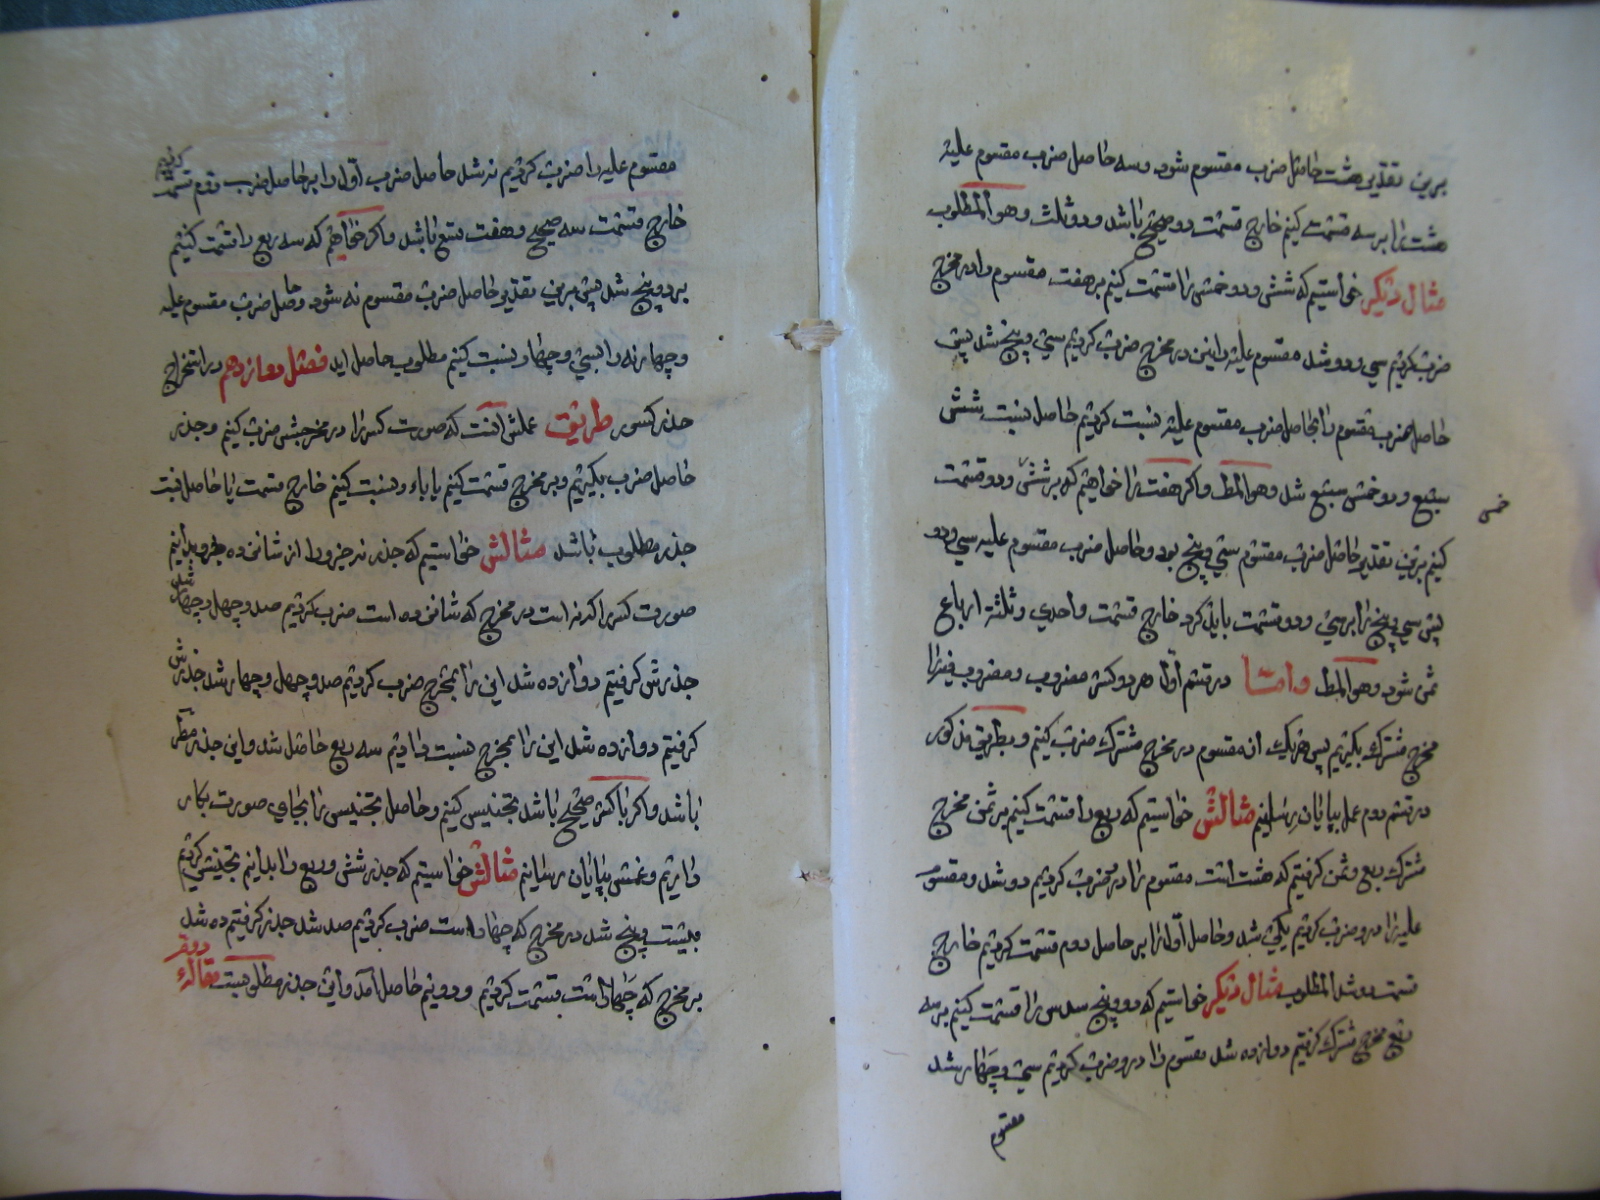 برین تقدیر هشت حاصل ضرب مقسوم شود وسه حاصل ضرب مقسوم علیه
هشت را بر سه قسمت کنیم خارج قسمت دو صحیح باشد ودو ثلث وهو المطلوب
مثال دیگر خواستیم که شش ودو خمس را قسمت کنیم بر هفت مقسوم را در مخرج
ضرب کردیم سی ودو شد مقسوم علیه را نیز در مخرج ضرب کردیم سی وپنج شد پس
حاصل ضرب مقسوم را بحاصل ضرب مقسوم علیه نسبت کردیم حاصل نسبت شش
سبع ودو خمس سبع شد وهو المط واکر هفت را خواهیم که بر شش ودو قسمت
خمس
کنیم برین تقدیر حاصل ضرب مقسوم سی وپنج بود وحاصل ضرب مقسوم علیه سی ودو
پس سی وپنج را بر سی ودو قسمت باید کرد خارج قسمت واحدی وثلثة ارباع
ثمن شود وهو المط واما در قسم اول هر دو کسر مضروب ومضروب فیه را
مخرج مشترک بکیریم پس هریک از مقسوم در مخرج مشترک ضرب کنیم وبطریق مذکور
در قسم دوم عمل بپایان رسانیم مثالش خواستیم که ربع را قسمت کنیم بر ثمن مخرج
مشترک ربع وثمن کرفتیم که هشت است مقسوم را در مخرج ضرب کردیم دو شد ومقسوم
علیه را درو ضرب کردیم یکی شد وحاصل اول را بر حاصل دوم قسمت کردیم خارج
قسمت دو شد المطلوب مثال دیکر خواستیم که دو وپنج سدس را قسمت کنیم بر سه
ربع مخرج مشترک کرفتیم دوازده شد مقسوم را درو ضرب کردیم سی وچهار شد
مقسوم
مقسوم علیه را ضرب کردیم نه شد حاصل ضرب اول را بر حاصل ضرب دوم قسمت کردیم
خارج قسمت سه صحیح وهفت تسع باشد واکر خواهیم که سه ربع را قسمت کنیم
بر دو پنج شد پس برین تقدیر حاصل ضرب مقسوم نه شود وحاصل ضرب مقسوم علیه
وچهار نه را بسی وچهار نسبت کنیم مطلوب حاصل اید فصل دوازدهم در استخراج
جذر کسور طریق عملش انست که صورت کسر را در مخرجش ضرب کنیم وجذر
حاصل ضرب بکیریم وبر مخرج قسمت کنیم یا باو نسبت کنیم خارج قسمت یا حاصل نسبت
جذر مطلوب باشد مثالش خواستیم که جذر نه جزو را از شانزده جزو بدانیم
صورت کسر را که نه است در مخرج که شانزده است ضرب کردیم صد وچهل وچهار شد
جذرش کرفتیم دوازده شد این را بمخرج ضرب کردیم صد وچهل وچهار شد جذرش
کرفتیم دوازده شد این را بمخرج نسبت دادیم سه ربع حاصل شد واین جذر مط
باشد واکر با کسر صحیح باشد تجنیس کنیم وحاصل تجنیس را بجای صورت بکار
داریم وعمل بپایان رسانیم مثالش خواستیم که جذر شش وربع را بدانیم تجنیس کردیم
بیست وپنج شد در مخرج که چهار است ضرب کردیم صد شد جذر کرفتیم ده شد
بر مخرج که چهار است قسمت کردیم ودو ونیم حاصل آمد واین جذر مطلوبست مقاله دوم